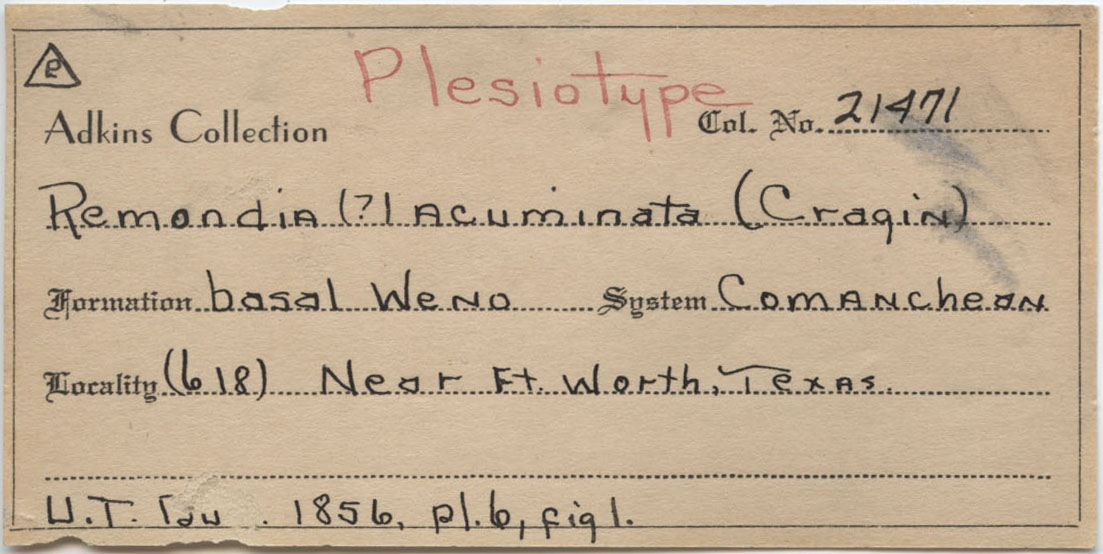 P
Plesiotype
Adkins Collection Col. No. 21471
Remondia (?) acuminata (Cragin)
Formation basal Weno System Comanchean
Locality (618) Near Ft. Worth, Texas.
U.T. 1856, pl. 6, fig 1.